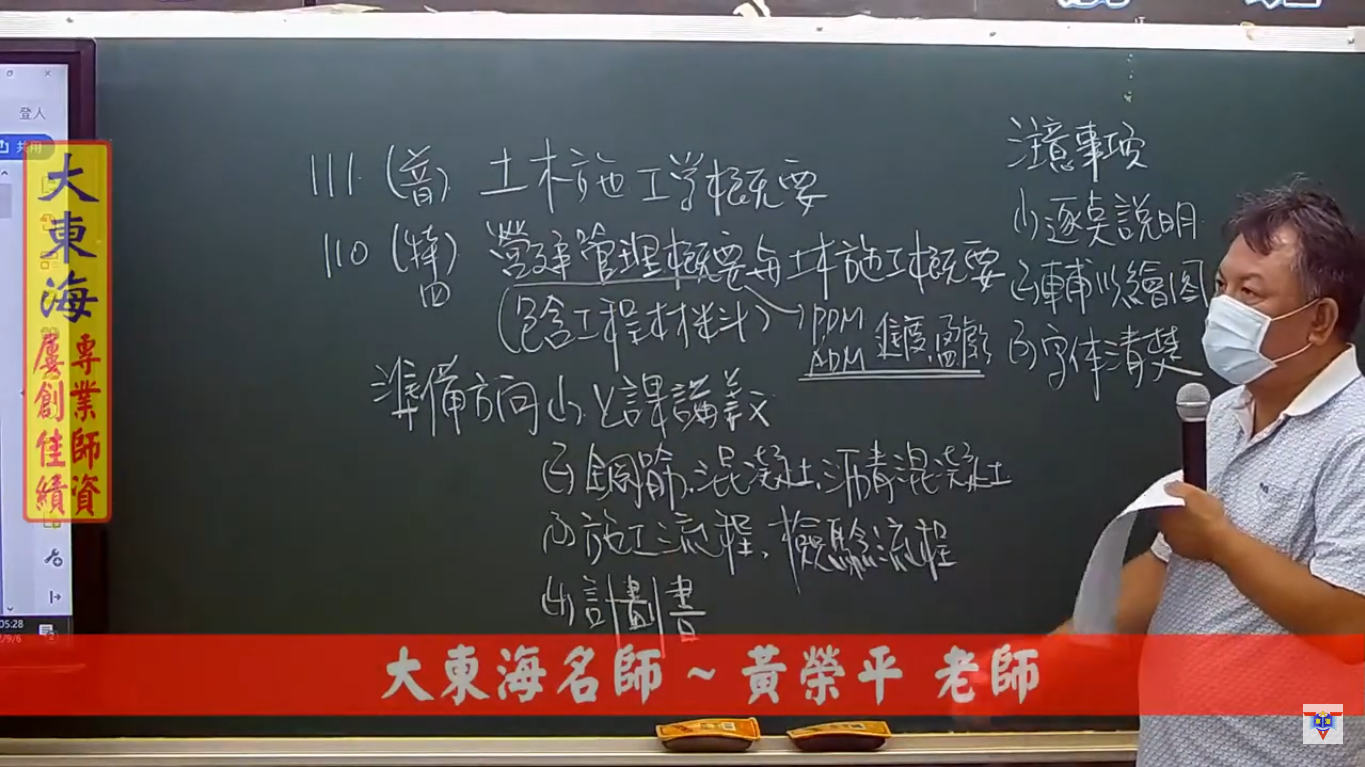 登入
共用
大東海
專業師資
屢創佳績
111 (普) 土木施工学概要
110 (特四) 營建管理概要與土木施工概要
(包含工程材料) → PDM
ADM 進度、盈虧
準備方向 (1) 上課講義
(2) 鋼筋、混凝土、沥青混凝土
(3) 施工流程、檢驗流程
(4) 計劃書
注意事項
(1) 逐項說明
(2) 輔以繪圖
(3) 字体清楚
05:28
2/9/6
大東海名師 ~ 黃榮平 老師